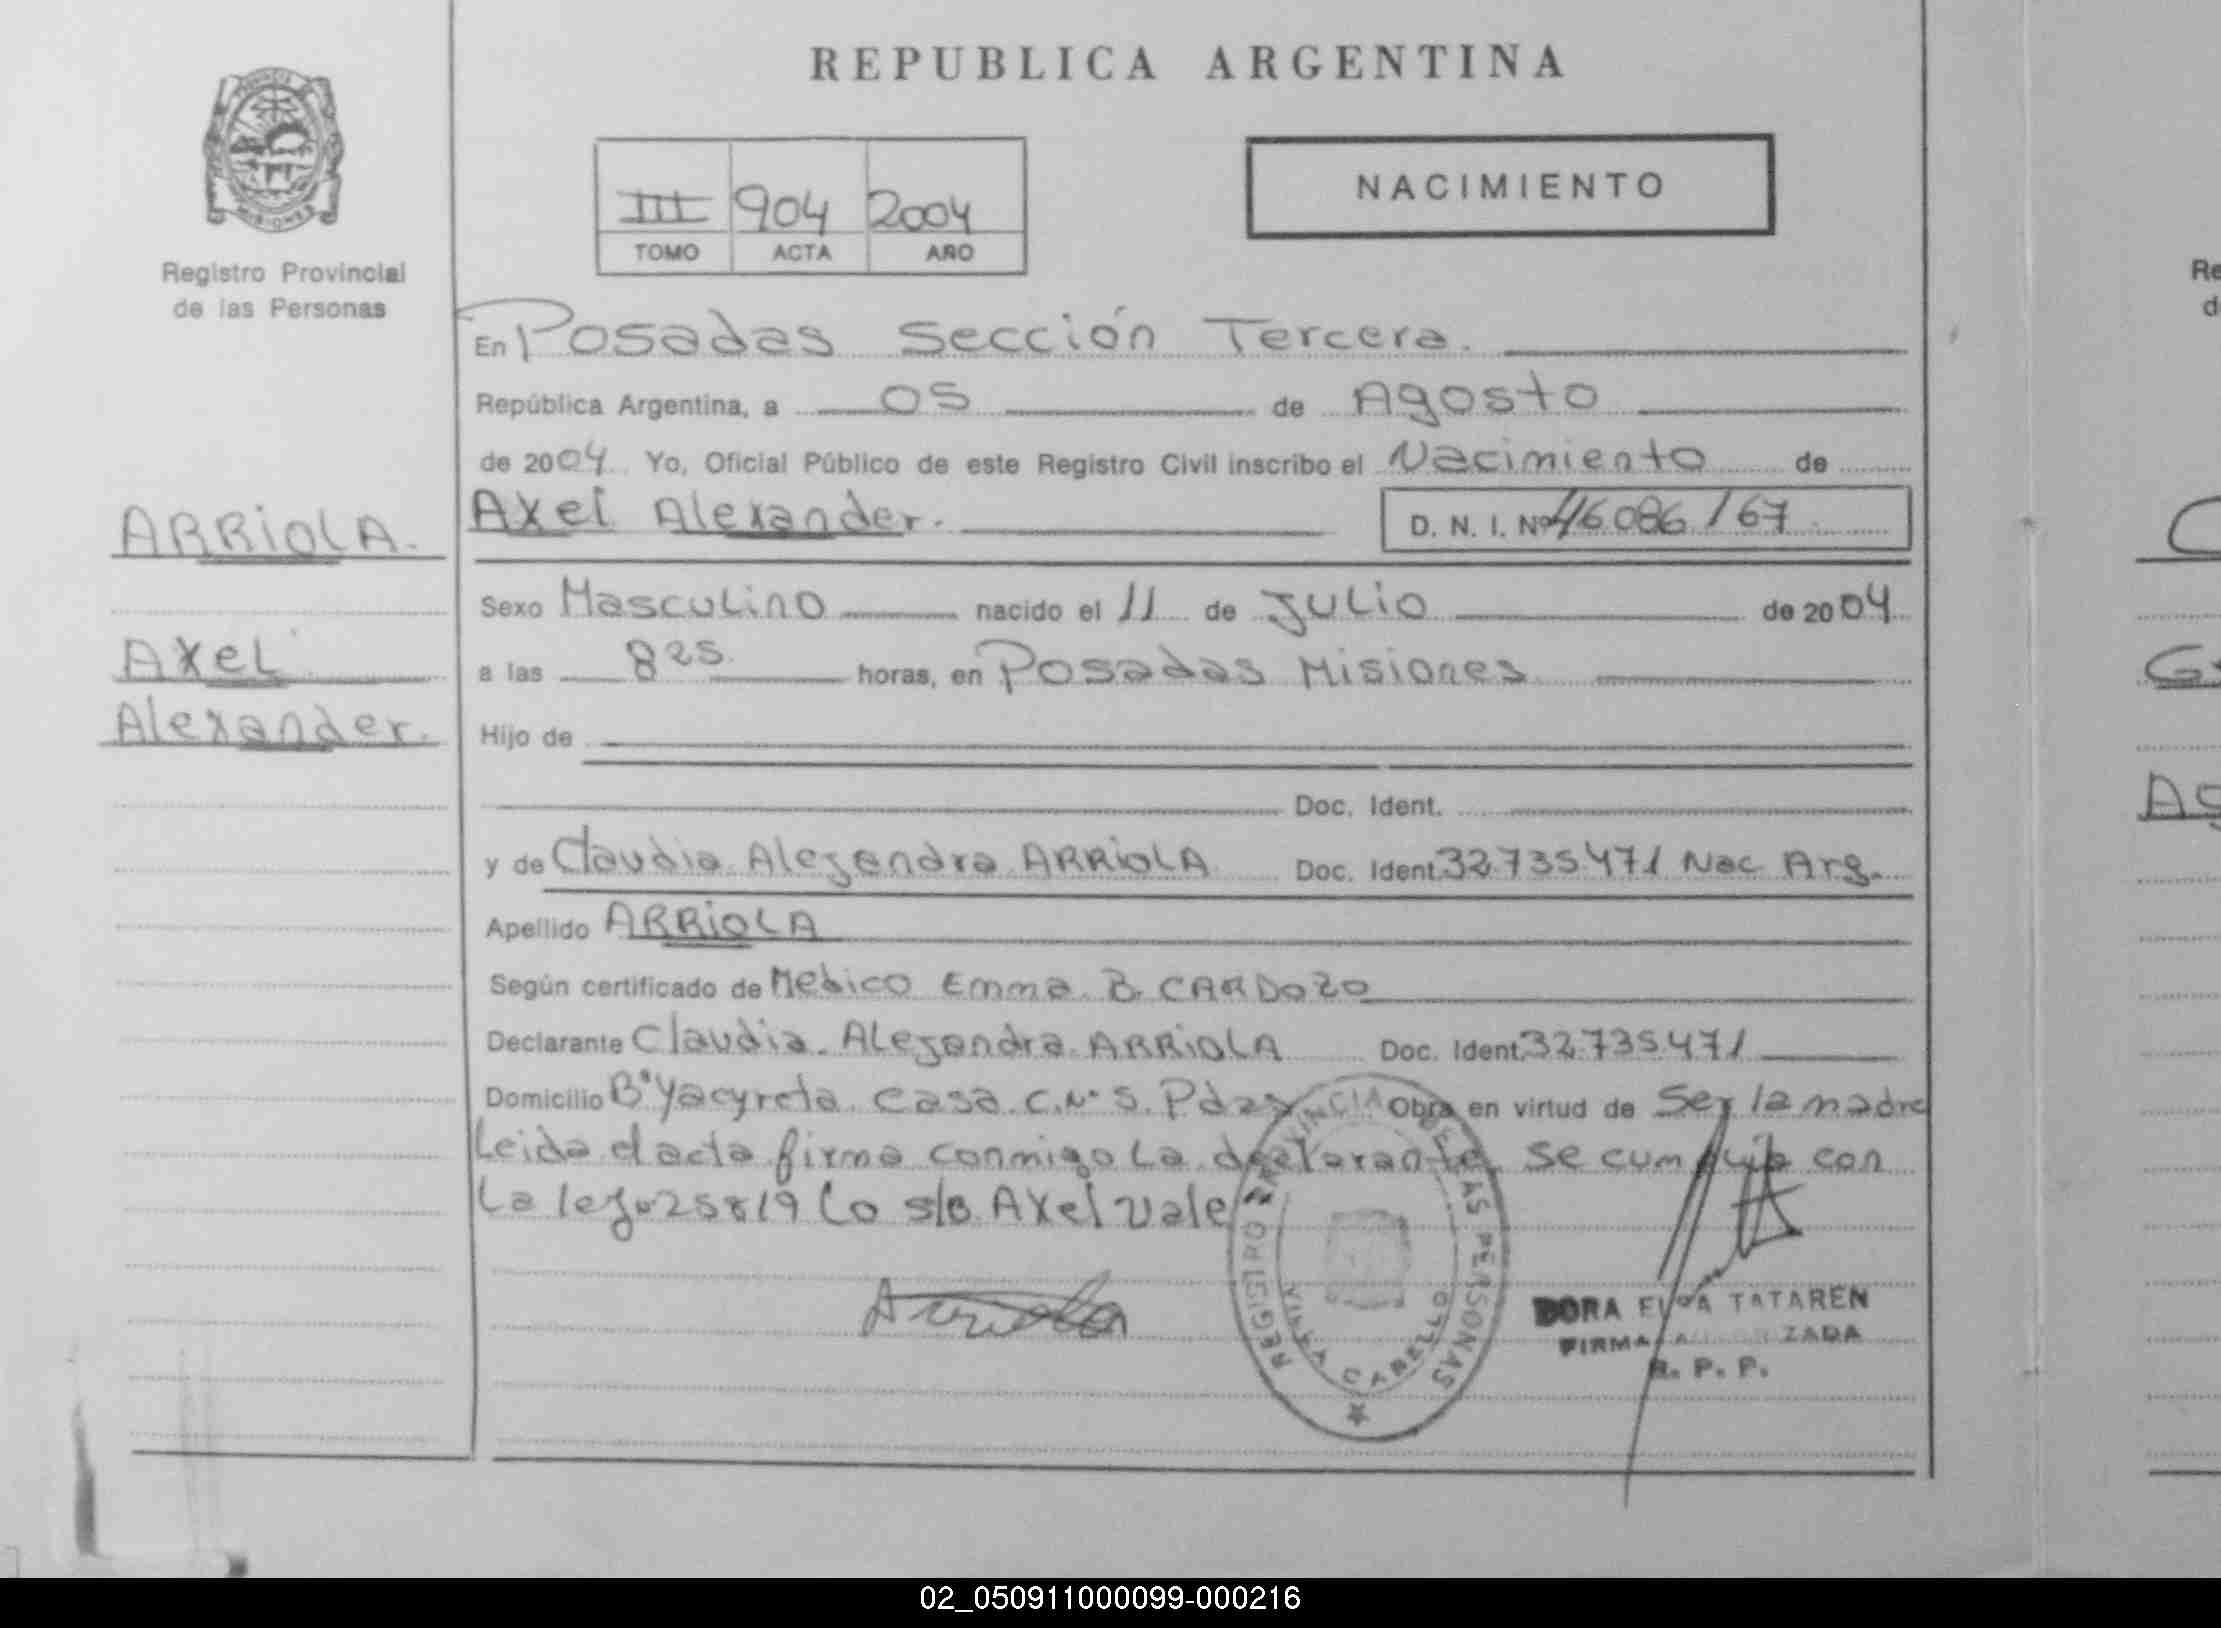 REPUBLICA ARGENTINA
PROVINCIA
MISIONES
Registro Provincial
de las Personas
III 904 2004
TOMO ACTA AÑO
NACIMIENTO
En Posadas Sección Tercera.
República Argentina, a 05 de Agosto
de 2004 Yo, Oficial Público de este Registro Civil inscribo el Nacimiento de
Axel Alexander. D. N. I. Nº 46.086.167
ARRIOLA.
Axel
Alexander.
Sexo Masculino nacido el 11 de Julio de 2004
a las 825 horas, en Posadas Misiones
Hijo de
Doc. Ident.
y de Claudia Alejandra ARRIOLA Doc. Ident. 32.735.471 Nac Arg.
Apellido ARRIOLA
Según certificado de Medico Emma B. CARDOZO
Declarante Claudia Alejandra ARRIOLA Doc. Ident. 32.735.471
Domicilio Bº Yacyreta casa C. Nº 5. Pdas Obra en virtud de Ser la madre
Leida el acta firma conmigo la declarante, se cumplió con
La ley 25819 Lo s/b Axel vale
Arriola
REGISTRO PROVINCIAL DE LAS PERSONAS
VILLA CABELLO
DORA ELSA TATAREN
FIRMA AUTORIZADA
R. P. P.
Re
d
C
G
Ag
02_050911000099-000216